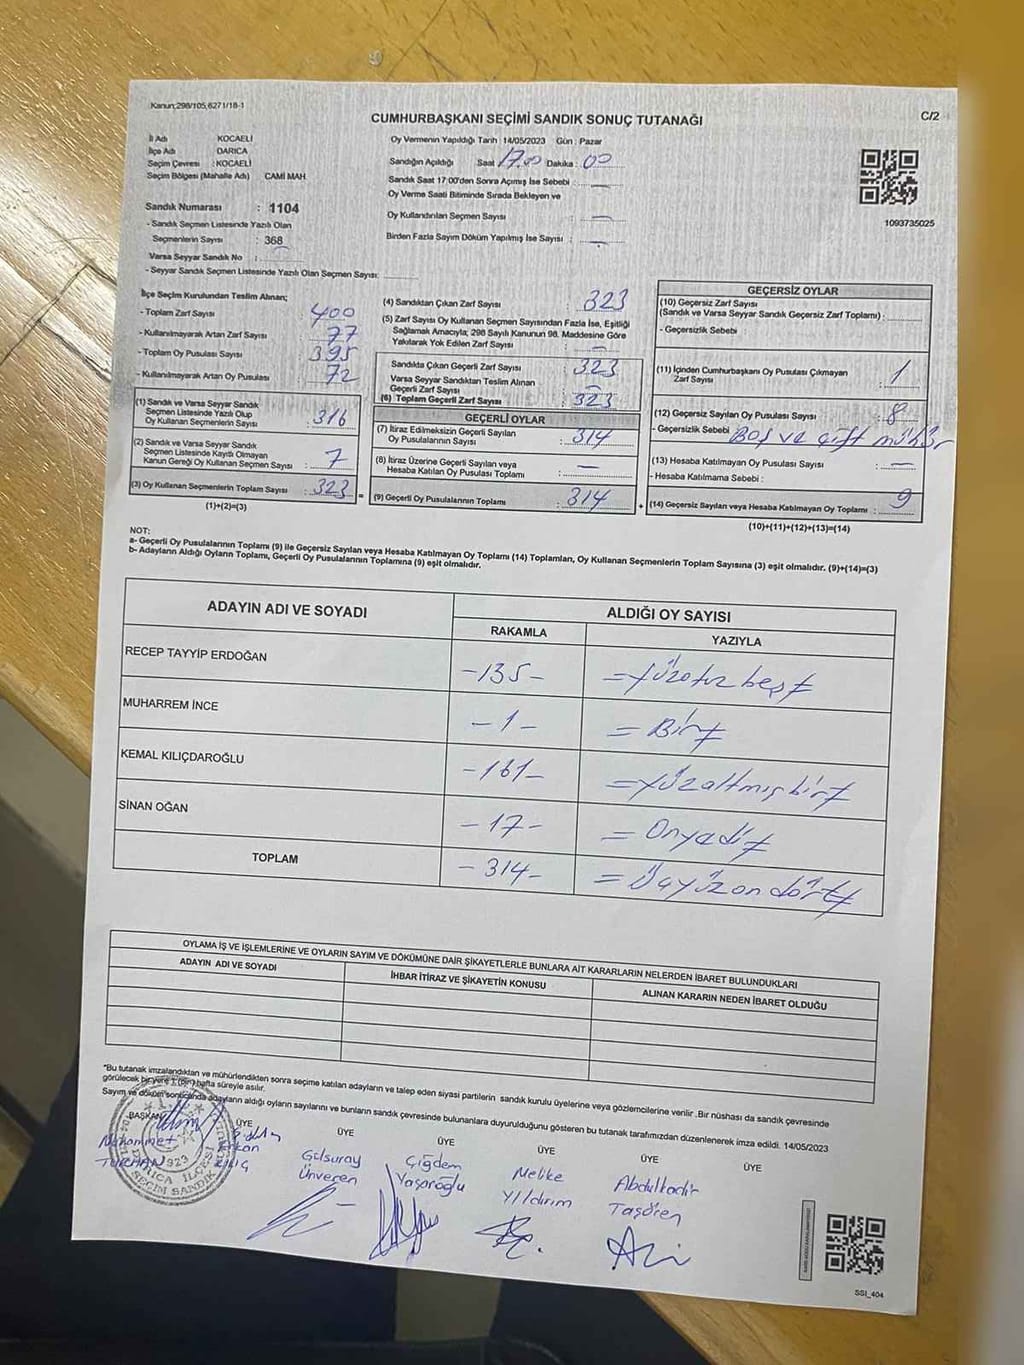 Kanun;298/105,6271/18-1
CUMHURBAŞKANI SEÇİMİ SANDIK SONUÇ TUTANAĞI
C/2
İl Adı KOCAELİ
İlçe Adı DARICA
Seçim Çevresi : KOCAELİ
Seçim Bölgesi (Mahalle Adı) CAMİ MAH.
Sandık Numarası : 1104
- Sandık Seçmen Listesinde Yazılı Olan
Seçmenlerin Sayısı : 368
Varsa Seyyar Sandık No :
- Seyyar Sandık Seçmen Listesinde Yazılı Olan Seçmen Sayısı:
Oy Vermenin Yapıldığı Tarih : 14/05/2023 Gün : Pazar
Sandığın Açıldığı Saat 17.00 Dakika : 00
Sandık Saat 17:00'den Sonra Açımış İse Sebebi : —
Oy Verme Saati Bitiminde Sırada Bekleyen ve
Oy Kullandırılan Seçmen Sayısı : —
Birden Fazla Sayım Döküm Yapılmış İse Sayısı : —
1093735025
İlçe Seçim Kurulundan Teslim Alınan;
- Toplam Zarf Sayısı 400
- Kullanılmayarak Artan Zarf Sayısı 77
- Toplam Oy Pusulası Sayısı 395
- Kullanılmayarak Artan Oy Pusulası 72
(1) Sandık ve Varsa Seyyar Sandık
Seçmen Listesinde Yazılı Olup
Oy Kullanan Seçmenlerin Sayısı : 316
(2) Sandık ve Varsa Seyyar Sandık
Seçmen Listesinde Kayıtlı Olmayan
Kanun Gereği Oy Kullanan Seçmen Sayısı : 7
(3) Oy Kullanan Seçmenlerin Toplam Sayısı : 323
(1)+(2)=(3)
(4) Sandıktan Çıkan Zarf Sayısı : 323
(5) Zarf Sayısı Oy Kullanan Seçmen Sayısından Fazla İse, Eşitliği
Sağlamak Amacıyla; 298 Sayılı Kanunun 98. Maddesine Göre
Yakılarak Yok Edilen Zarf Sayısı : —
Sandıkta Çıkan Geçerli Zarf Sayısı : 323
Varsa Seyyar Sandıktan Teslim Alınan
Geçerli Zarf Sayısı : —
(6) Toplam Geçerli Zarf Sayısı : 323
GEÇERLİ OYLAR
(7) İtiraz Edilmeksizin Geçerli Sayılan
Oy Pusulalarının Sayısı : 314
(8) İtiraz Üzerine Geçerli Sayılan veya
Hesaba Katılan Oy Pusulası Toplamı : —
(9) Geçerli Oy Pusulalarının Toplamı : 314
GEÇERSİZ OYLAR
(10) Geçersiz Zarf Sayısı
(Sandık ve Varsa Seyyar Sandık Geçersiz Zarf Toplamı) :
- Geçersizlik Sebebi :
(11) İçinden Cumhurbaşkanı Oy Pusulası Çıkmayan
Zarf Sayısı : 1
(12) Geçersiz Sayılan Oy Pusulası Sayısı : 8
- Geçersizlik Sebebi : Boş ve çift mühür
(13) Hesaba Katılmayan Oy Pusulası Sayısı : —
- Hesaba Katılmama Sebebi :
(14) Geçersiz Sayılan veya Hesaba Katılmayan Oy Toplamı : 9
(10)+(11)+(12)+(13)=(14)
NOT:
a- Geçerli Oy Pusulalarının Toplamı (9) ile Geçersiz Sayılan veya Hesaba Katılmayan Oy Toplamı (14) Toplamları, Oy Kullanan Seçmenlerin Toplam Sayısına (3) eşit olmalıdır. (9)+(14)=(3)
b- Adayların Aldığı Oyların Toplamı, Geçerli Oy Pusulalarının Toplamına (9) eşit olmalıdır.
ADAYIN ADI VE SOYADI ALDIĞI OY SAYISI
RAKAMLA YAZIYLA
RECEP TAYYİP ERDOĞAN -135- =Yüzotuzbeş≠
MUHARREM İNCE -1- =Bir≠
KEMAL KILIÇDAROĞLU -161- =Yüzaltmışbir≠
SİNAN OĞAN -17- =Onyedi≠
TOPLAM -314- =Üçyüzondört≠
OYLAMA İŞ VE İŞLEMLERİNE VE OYLARIN SAYIM VE DÖKÜMÜNE DAİR ŞİKAYETLERLE BUNLARA AİT KARARLARIN NELERDEN İBARET BULUNDUKLARI
ADAYIN ADI VE SOYADI İHBAR İTİRAZ VE ŞİKAYETİN KONUSU ALINAN KARARIN NEDEN İBARET OLDUĞU
"Bu tutanak imzalandıktan ve mühürlendikten sonra seçime katılan adayların ve talep eden siyasi partilerin sandık kurulu üyelerine veya gözlemcilerine verilir .Bir nüshası da sandık çevresinde
görülecek bir yere 1 (bir) hafta süreyle asılır.
Sayım ve döküm sonucunda adayların aldığı oyların sayılarını ve bunların sandık çevresinde bulunanlara duyurulduğunu gösteren bu tutanak tarafımızdan düzenlenerek imza edildi. 14/05/2023
BAŞKAN ÜYE ÜYE ÜYE ÜYE ÜYE ÜYE
Muhammet TURHAN
KILIÇ
Gülsuray Ünveren
Çiğdem Yaşaroğlu
Melike Yıldırım
Abdulkadir Taşören
DARICA İLÇESİ
SEÇİM SANDIK
SSI_404